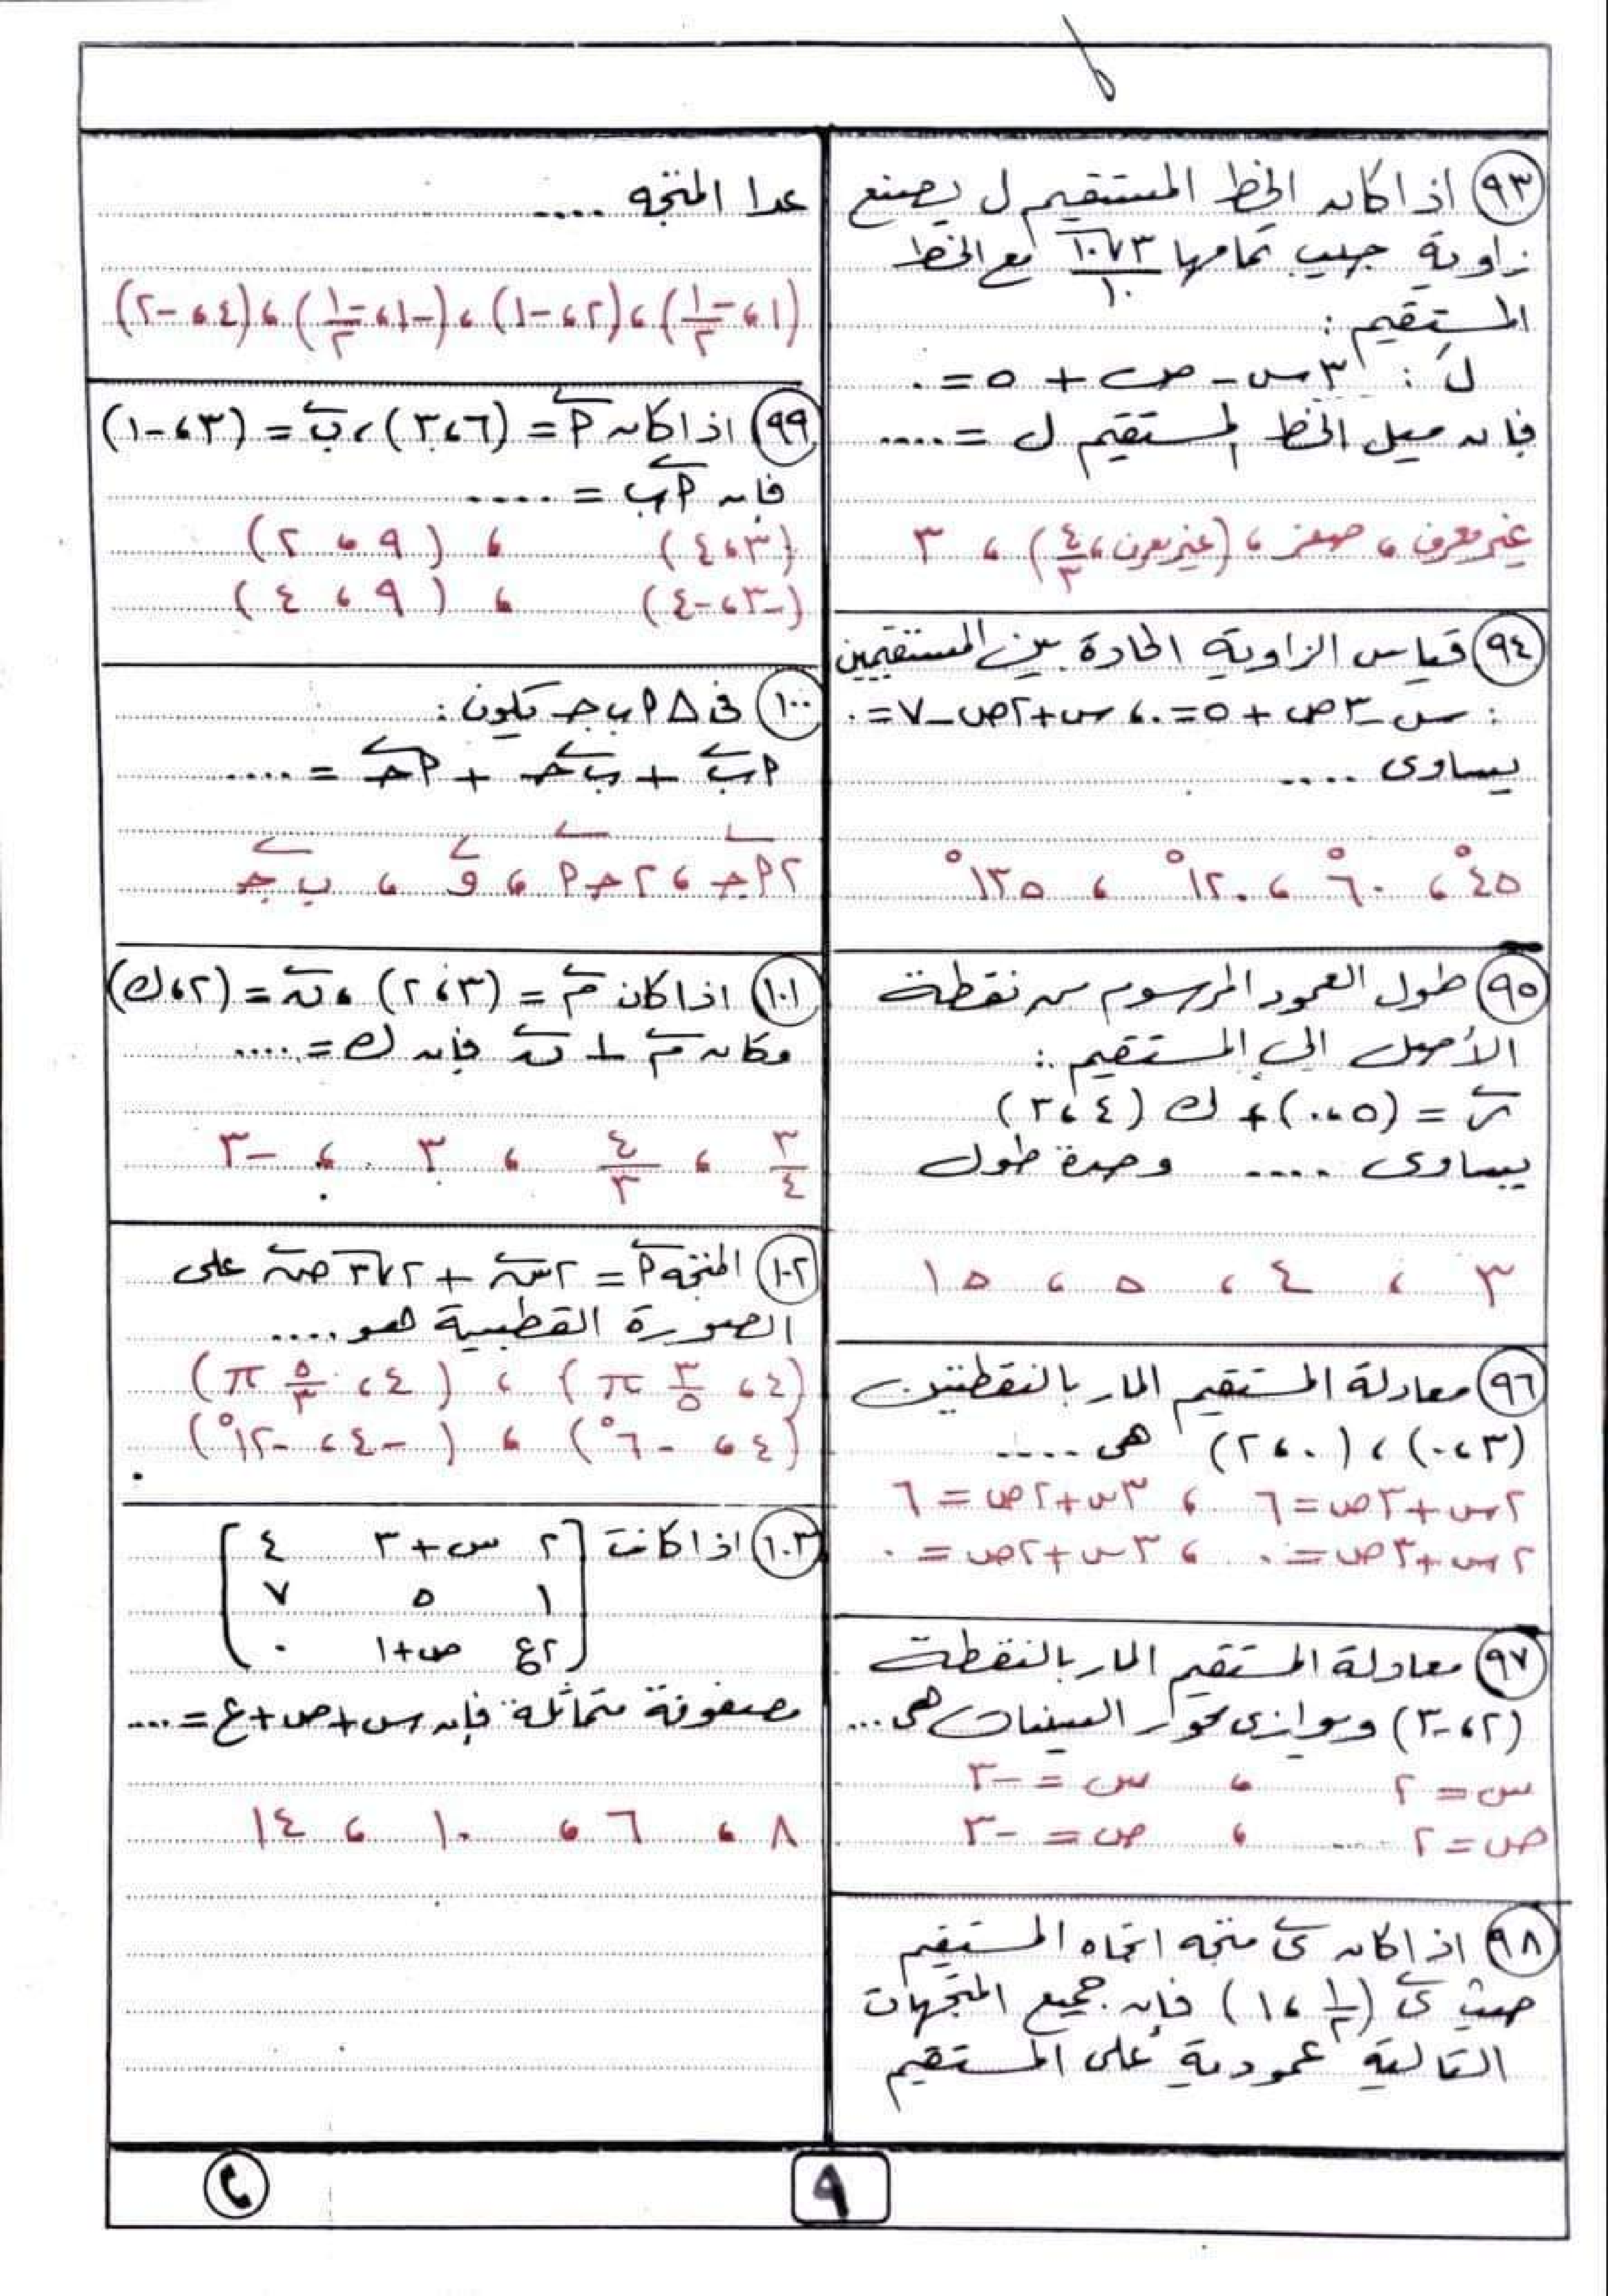 (٩٣) اذا كان الخط المستقيم ل يصنع
زاوية جيب تمامها ٣√١٠/١٠ مع الخط
المستقيم :
لَ : ٣س - ص + ٥ = ٠
فإن ميل الخط المستقيم ل = ....
غير معرف ، صفر ، (غير معرف ، ٤/٣) ، ٣
(٩٤) قياس الزاوية الحادة بين المستقيمين
: س - ٣ص + ٥ = ٠ ، س + ٢ص - ٧ = ٠
يساوى ....
٤٥° ، ٦٠° ، ١٢٠° ، ١٣٥°
(٩٥) طول العمود المرسوم من نقطة
الأصل الى المستقيم :
ر = (٥ ، ٠) + ك (٤ ، ٣)
يساوى .... وحدة طول
٣ ، ٤ ، ٥ ، ١٥
(٩٦) معادلة المستقيم المار بالنقطتين
(٣ ، ٠) ، (٠ ، ٢) هى ....
٢س + ٣ص = ٦ ، ٣س + ٢ص = ٦
٢س + ٣ص = ٠ ، ٣س + ٢ص = ٠
(٩٧) معادلة المستقيم المار بالنقطة
(٢ ، -٣) ويوازى محور السينات هى ...
س = ٢ ، س = -٣
ص = ٢ ، ص = -٣
(٩٨) اذا كان ى متجه اتجاه المستقيم
حيث ى (١/٢ ، ١) فإن جميع المتجهات
التالية عمودية على المستقيم
عدا المتجه ....
(١ ، -١/٢) ، (٢ ، -١) ، (-١ ، -١/٢) ، (٤ ، -٢)
(٩٩) اذا كان أ = (٦ ، ٣) ، ب = (٣ ، -١)
فإن أب = ....
(٣ ، ٤) ، (٩ ، ٢)
(-٣ ، -٤) ، (٩ ، ٤)
(١٠٠) فى Δ أ ب جـ تكون :
أب + ب جـ + أجـ = ....
٢أجـ ، ٢جـأ ، و ، ب جـ
(١٠١) اذا كان م = (٣ ، ٢) ، ن = (٢ ، ك)
وكان م ⊥ ن فإن ك = ....
٣/٤ ، ٤/٣ ، ٣ ، -٣
(١٠٢) المتجه أ = ٢س + ٢√٣ ص على
الصورة القطبية هو ....
(٤ ، ٣/٥ π) ، (٤ ، ٥/٣ π)
(٤ ، -٦٠°) ، (-٤ ، -١٢٠°)
(١٠٣) اذا كانت [ ٢ س+٣ ٤
١ ٥ ٧
٢ع ص+١ ٠ ]
مصفوفة متماثلة فإن س + ص + ع = ...
٨ ، ٦ ، ١٠ ، ١٤
٩